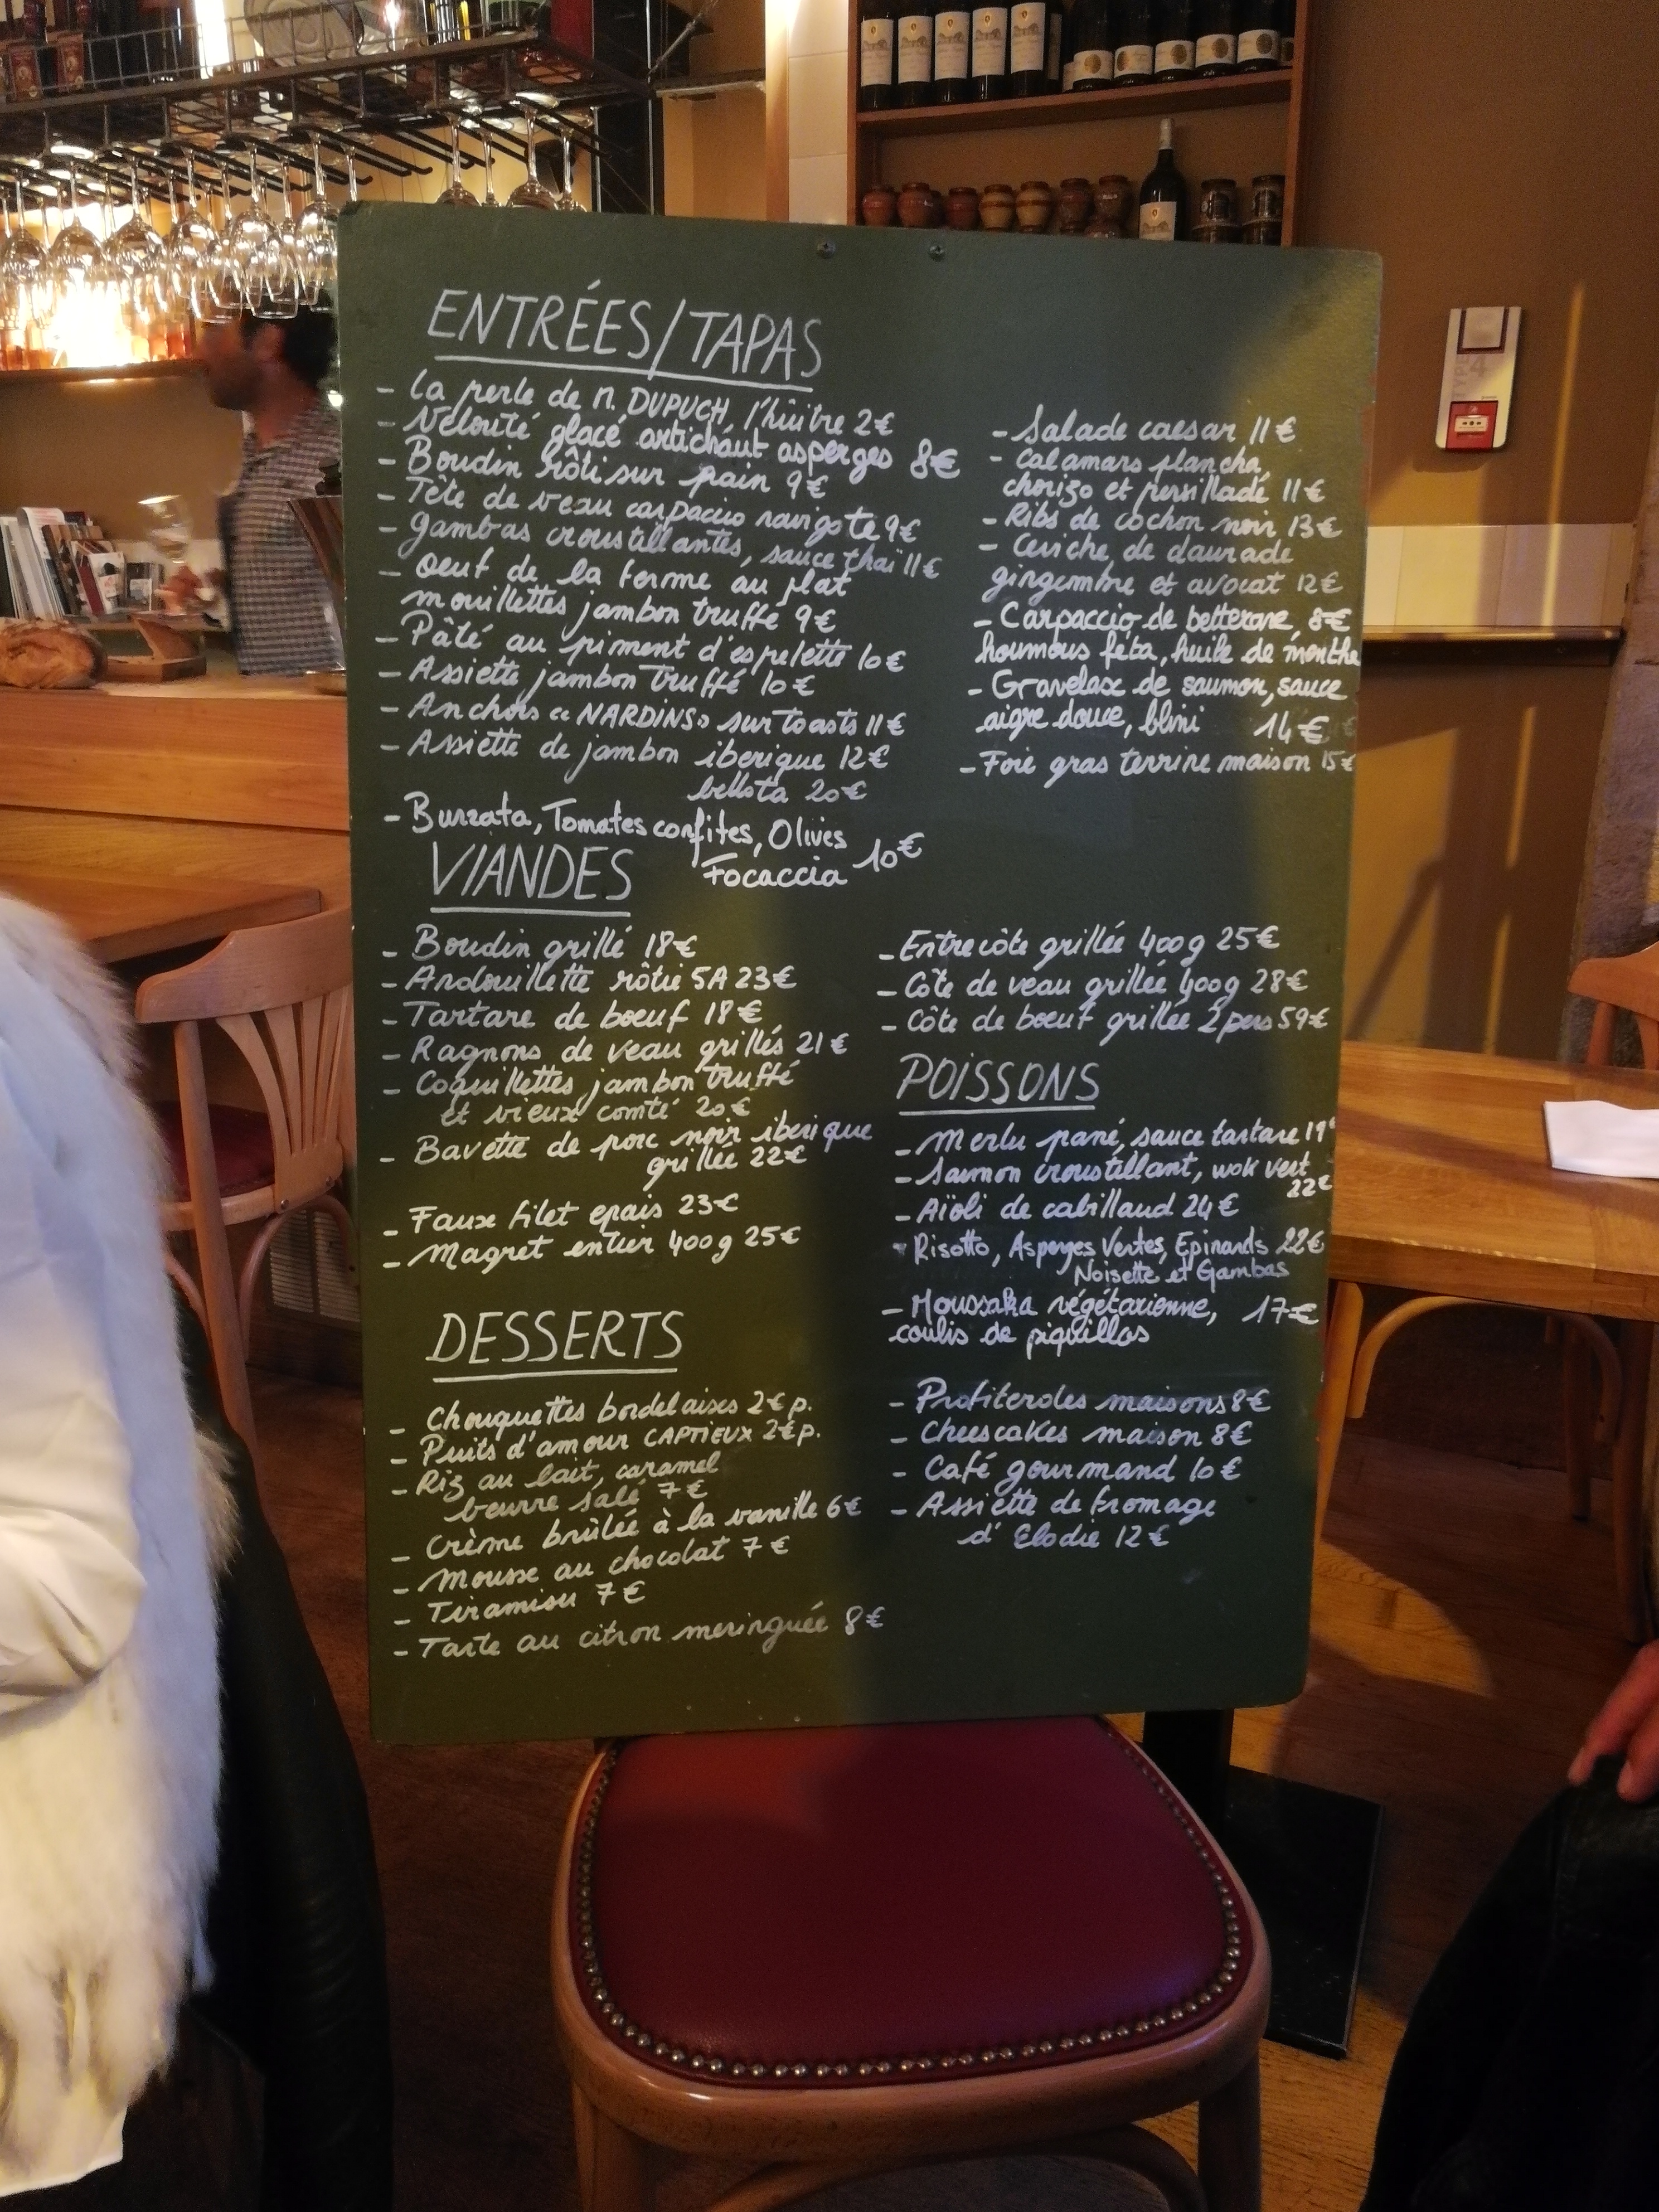 ENTRÉES/TAPAS
- La perle de M. DUPUCH, l'huître 2€
- Velouté glacé artichaut asperges 8€
- Boudin rôti sur pain 9€
- Tête de veau carpaccio ravigote 9€
- Gambas croustillantes, sauce thaï 11€
- Oeuf de la ferme au plat
mouillettes jambon truffé 9€
- Pâté au piment d'espelette 10€
- Assiette jambon truffé 10€
- Anchois « NARDINS » sur toasts 11€
- Assiette de jambon iberique 12€
bellota 20€
- Burrata, Tomates confites, Olives
Focaccia 10€
- Salade caesar 11€
- Calamars plancha,
chorizo et persillade 11€
- Ribs de cochon noir 13€
- Ceviche de daurade
gingembre et avocat 12€
- Carpaccio de betterave, 8€
houmous féta, huile de menthe
- Gravelax de saumon, sauce
aigre douce, blini 14€
- Foie gras terrine maison 15€
VIANDES
- Boudin grillé 18€
- Andouillette rôtie 5A 23€
- Tartare de boeuf 18€
- Rognons de veau grillés 21€
- Coquillettes jambon truffé
et vieux comté 20€
- Bavette de porc noir iberique
grillée 22€
- Faux filet epais 23€
- Magret entier 400g 25€
- Entrecôte grillée 400g 25€
- Côte de veau grillée 400g 28€
- Côte de boeuf grillée 2 pers 59€
POISSONS
- Merlu pané, sauce tartare 19€
- Saumon croustillant, wok vert
22€
- Aïoli de cabillaud 24€
- Risotto, Asperges Vertes, Epinards 22€
Noisette et Gambas
- Moussaka végétarienne, 17€
coulis de piquillos
DESSERTS
- Chouquettes bordelaises 2€ p.
- Puits d'amour CAPTIEUX 2€ p.
- Riz au lait, caramel
beurre salé 7€
- Crème brûlée à la vanille 6€
- Mousse au chocolat 7€
- Tiramisu 7€
- Tarte au citron meringuée 8€
- Profiteroles maisons 8€
- Cheescakes maison 8€
- Café gourmand 10€
- Assiette de fromage
d'Elodie 12€